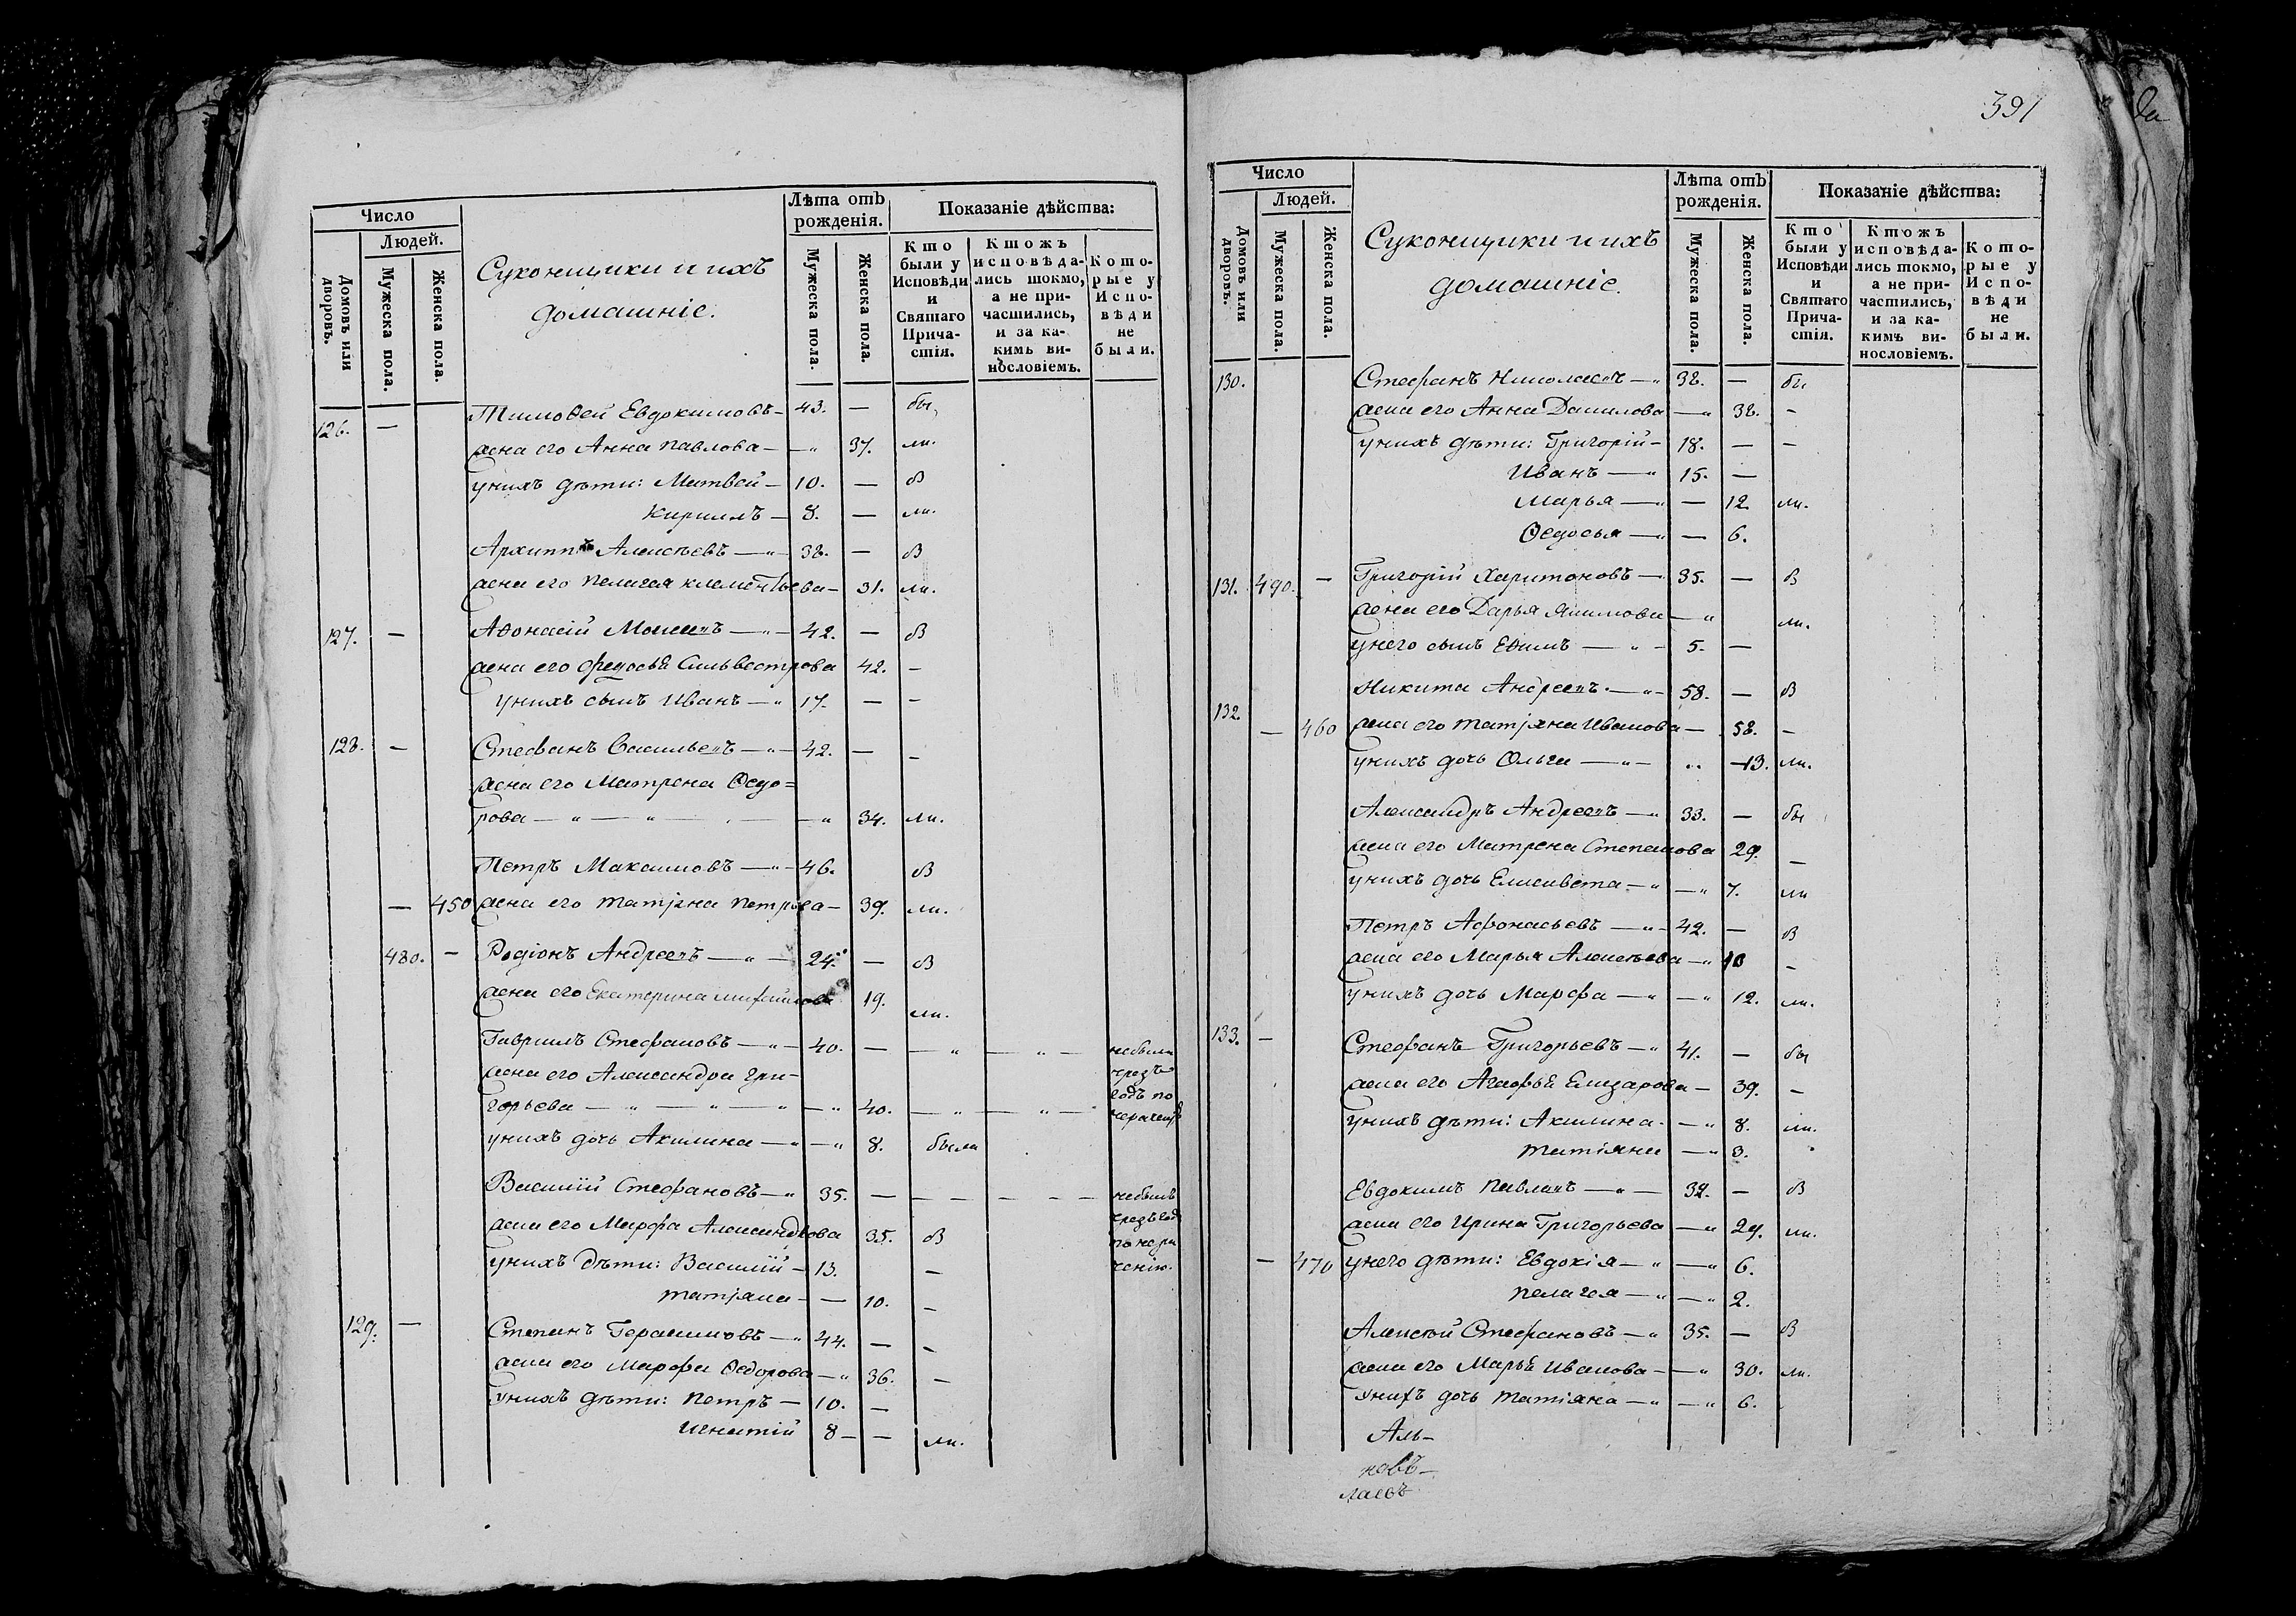 Число
Людей.
Домовъ или дворовъ.
Мужеска пола.
Женска пола.
Суконщики и ихъ
домашніе.
Лѣта отъ
рожденія.
Мужеска пола.
Женска пола.
Показаніе дѣйства:
Кто
были у
Исповѣди
и
Святаго
Прича-
стія.
Ктожъ
исповѣда-
лись токмо,
а не при-
частились,
и за ка-
кимъ ви-
нословіемъ.
Кото-
рые у
Испо-
вѣди
не
были.
126. — Тимоѳей Евдокимовъ — 43. — бы,
жена его Анна Павлова — 37. ли.
у нихъ дѣти: Матвей — 10. — в
Кирилъ — 8. — ли.
Архиппъ Алексѣевъ — 38. — в
жена его Пелагея Клементьева — 31. ли.
127. — Аѳонасій Моисеевъ — 42. — в
жена его Федосья Сильвестрова 42. —
у нихъ сынъ Иванъ — 17. — —
128. — Стефанъ Васильевъ — 42. — —
жена его Матрена Ѳедо=
рова — 34. ли.
Петръ Максимовъ — 46. в
— 450 жена его Татіяна Петрова — 39. ли.
480. — Родіонъ Андреевъ — 24. — в
жена его Екатерина Михайлова 19. ли.
Гаврилъ Стефановъ — 40. — — — небыли
чрезъ
годъ по
жена его Александра Гри-
горьева — 40. — —
у нихъ дочь Акилина — 8. была
Василій Стефановъ — 35. — — — — — небылъ
жена его Марфа Александрова 35. в
у нихъ дѣти: Василій — 13. —
Татіяна — — 10. —
129. — Степанъ Герасимовъ — 44. — —
жена его Марфа Ѳедорова — 36. —
у нихъ дѣти: Петръ — 10. —
Игнатій 8 — — ли.
391
Число
Людей.
Домовъ или дворовъ.
Мужеска пола.
Женска пола.
Суконщики и ихъ
домашніе.
Лѣта отъ
рожденія.
Мужеска пола.
Женска пола.
Показаніе дѣйства:
Кто
были у
Исповѣди
и
Святаго
Прича-
стія.
Ктожъ
исповѣда-
лись токмо,
а не при-
частились,
и за ка-
кимъ ви-
нословіемъ.
Кото-
рые у
Испо-
вѣди
не
были.
130. Стефанъ Николаевъ — 38. — бы
жена его Анна Данилова — 38. —
у нихъ дѣти: Григорій — 18. — —
Иванъ — 15. —
Марья — — 12. ли.
Ѳедосья — — 6.
131. 490. — Григорій Харитоновъ — 35. — в
жена его Дарья Якимова — ли.
у него сынъ Ефимъ — 5. —
132 Никита Андреевъ — 58. — в
— 460 жена его Татіяна Иванова — 58. —
у нихъ дочь Ольга — — 13. ли.
Александръ Андреевъ — 33. — бы
жена его Матрена Степанова 29. —
у нихъ дочь Елисавета — — 7. ли
Петръ Афонасьевъ — 42. — в
жена его Марья Алексѣева — —
у нихъ дочь Марфа — — 12. ли.
133. — Стефанъ Григорьевъ — 41. — бы
жена его Агафья Елизарова — 39. —
у нихъ дѣти: Акилина — — 8. ли.
Татіяна — 3.
Евдокимъ Павловъ — 32. — в
жена его Ирина Григорьева — 29. ли.
— 470 у него дѣти: Евдокія — — 6.
Пелагея — — 2.
Алексѣй Стефановъ — 35. — в
жена его Марья Иванова — — 30. ли.
у нихъ дочь Татіяна — — 6.
Аль-